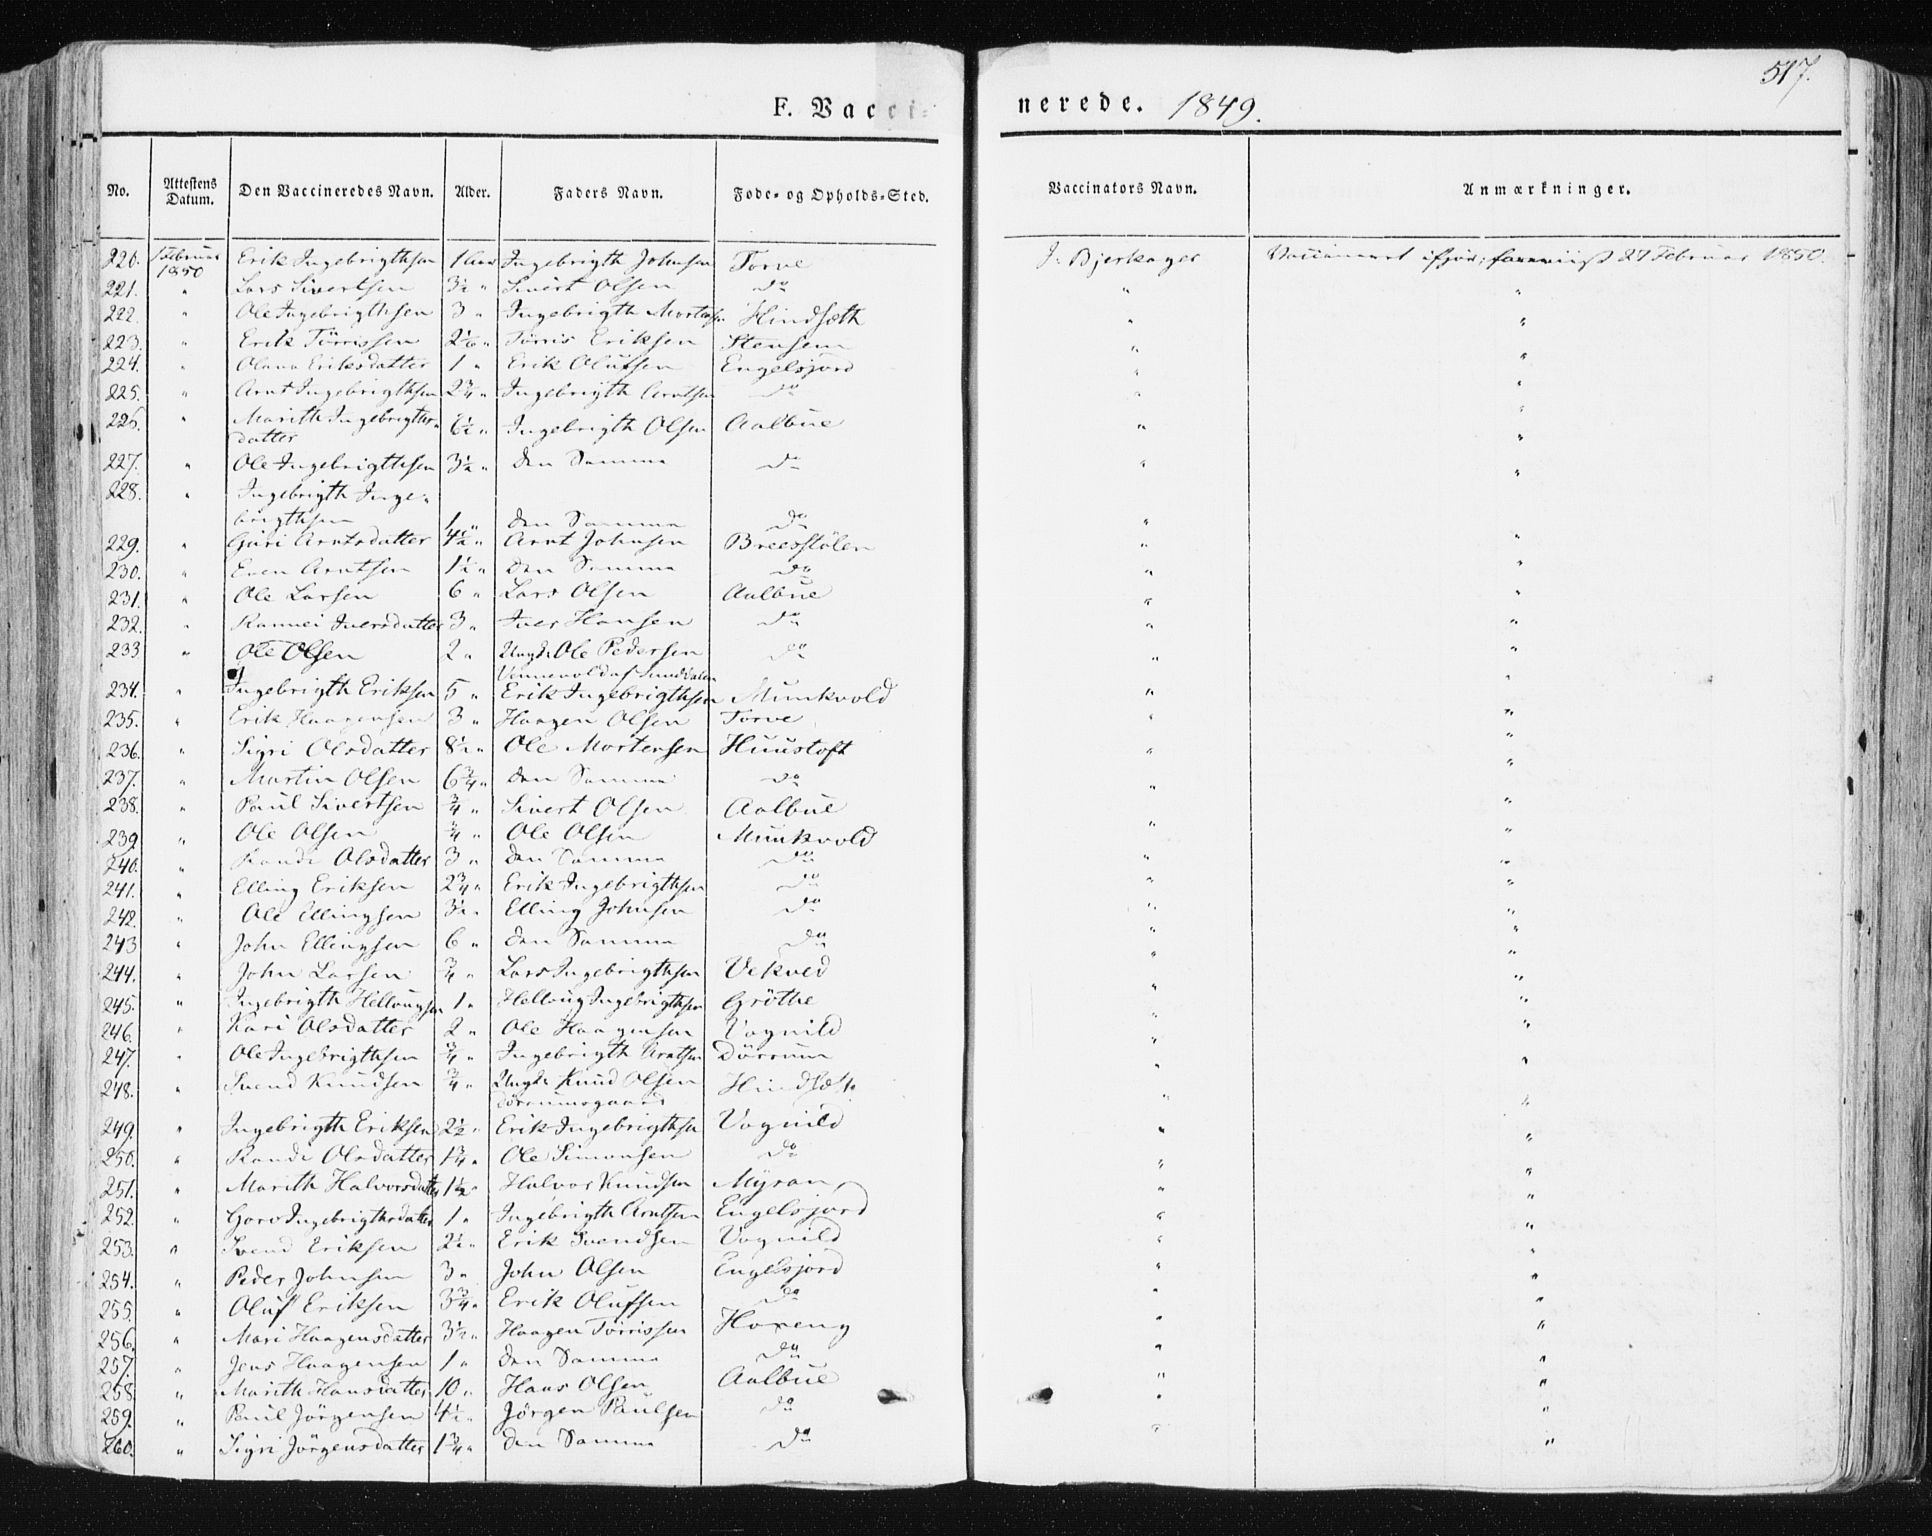 517.
F. Vacci- nerede. 1849.
No. Attestens Datum. Den Vaccineredes Navn. Alder. Faders Navn. Føde- og Opholds-Sted. Vaccinators Navn. Anmærkninger.
220. 1 Februar 1850 Erik Ingebrigthsen 1 Ingebrigth Johnsen Torve J. Bjerkager Vaccineret ifjor; 27 Februar 1850.
221. " Lars Sivertsen 3½ " Sivert Olsen do " "
222. " Ole Ingebrigthsen 3 " Ingebrigth Mortensen Hindsæth " "
223. " Erik Törrissen " Törris Eriksen Stensem " "
224. " Olana Eriksdatter 1 " Erik Olufsen Engelsjord " "
225. " Arnt Ingebrigthsen 2¾ " Ingebrigth Arntsen do " "
226. " Marith Ingebrigths-
datter 6½ " Ingebrigth Olsen Aalbue " "
227. " Ole Ingebrigthsen 3½ " den Samme do " "
228. " Ingebrigth Inge-
brigthsen 1 " den Samme do " "
229. " Guri Arntsdatter 4½ " Arnt Johnsen Breesstölen " "
230. " Even Arntsen 1½ " den Samme do " "
231. " Ole Larsen 6 " Lars Olsen Aalbue " "
232. " Rannei Iversdatter 3 " Iver Hansen do " "
233. " Ole Olsen 2 " Ungk. Ole Pedersen do " "
Vennevold af Sunddalen
234. " Ingebrigth Eriksen 5 " Erik Ingebrigthsen Munkvold " "
235. " Erik Haagensen 3 " Haagen Olsen Torve " "
236. " Sigri Olsdatter 8½ " Ole Mortensen Huustoft " "
237. " Martin Olsen 6¾ " den Samme do " "
238. " Paul Sivertsen ¾ " Sivert Olsen Aalbue " "
239. " Ole Olsen ¾ " Ole Olsen Munkvold " "
240. " Randi Olsdatter 3 " den Samme do " "
241. " Elling Eriksen 2¾ " Erik Ingebrigthsen do " "
242. " Ole Ellingsen 3½ " Elling Johnsen do " "
243 " John Ellingsen 6 " den Samme do " "
244. " John Larsen ¾ " Lars Ingebrigthsen Vekved " "
245. " Ingebrigth Hellvugsen 1 " Hellvug Ingebrigthsen Gröthe " "
246. " Kari Olsdatter 2 " Ole Haagensen Vognild " "
247. " Ole Ingebrigthsen ¾ " Ingebrigth Arntsen Dörrum " "
248. " Svend Knudsen ¾ " Ungk. Knud Olsen Hindsæth " "
Dörrumsgaard
249. " Ingebrigth Eriksen 2½ " Erik Ingebrigthsen Vognild " "
250. " Randi Olsdatter 1¾ " Ole Simonsen do " "
251. " Marith Halvorsdatter 1½ " Halvor Knudsen Myran " "
252. " Goro Ingebrigthsdatter 1 " Ingebrigth Arntsen Engelsjord " "
253. " Svend Eriksen 2½ " Erik Svendsen Vognild " "
254. " Peder Johnsen 3 " John Olsen Engelsjord " "
255. " Oluf Eriksen 3¾ " Erik Olufsen do " "
256. " Mari Haagensdatter 3½ " Haagen Törrissen Hoxeng " "
257. " Jens Haagensen 1 " den Samme do " "
258. " Marith Hansdatter 10 " Hans Olsen Aalbue " "
259. " Paul Jörgensen 4½ " Jörgen Paulsen do " "
260. " Sigri Jörgensdatter 1¾ " den Samme do " "